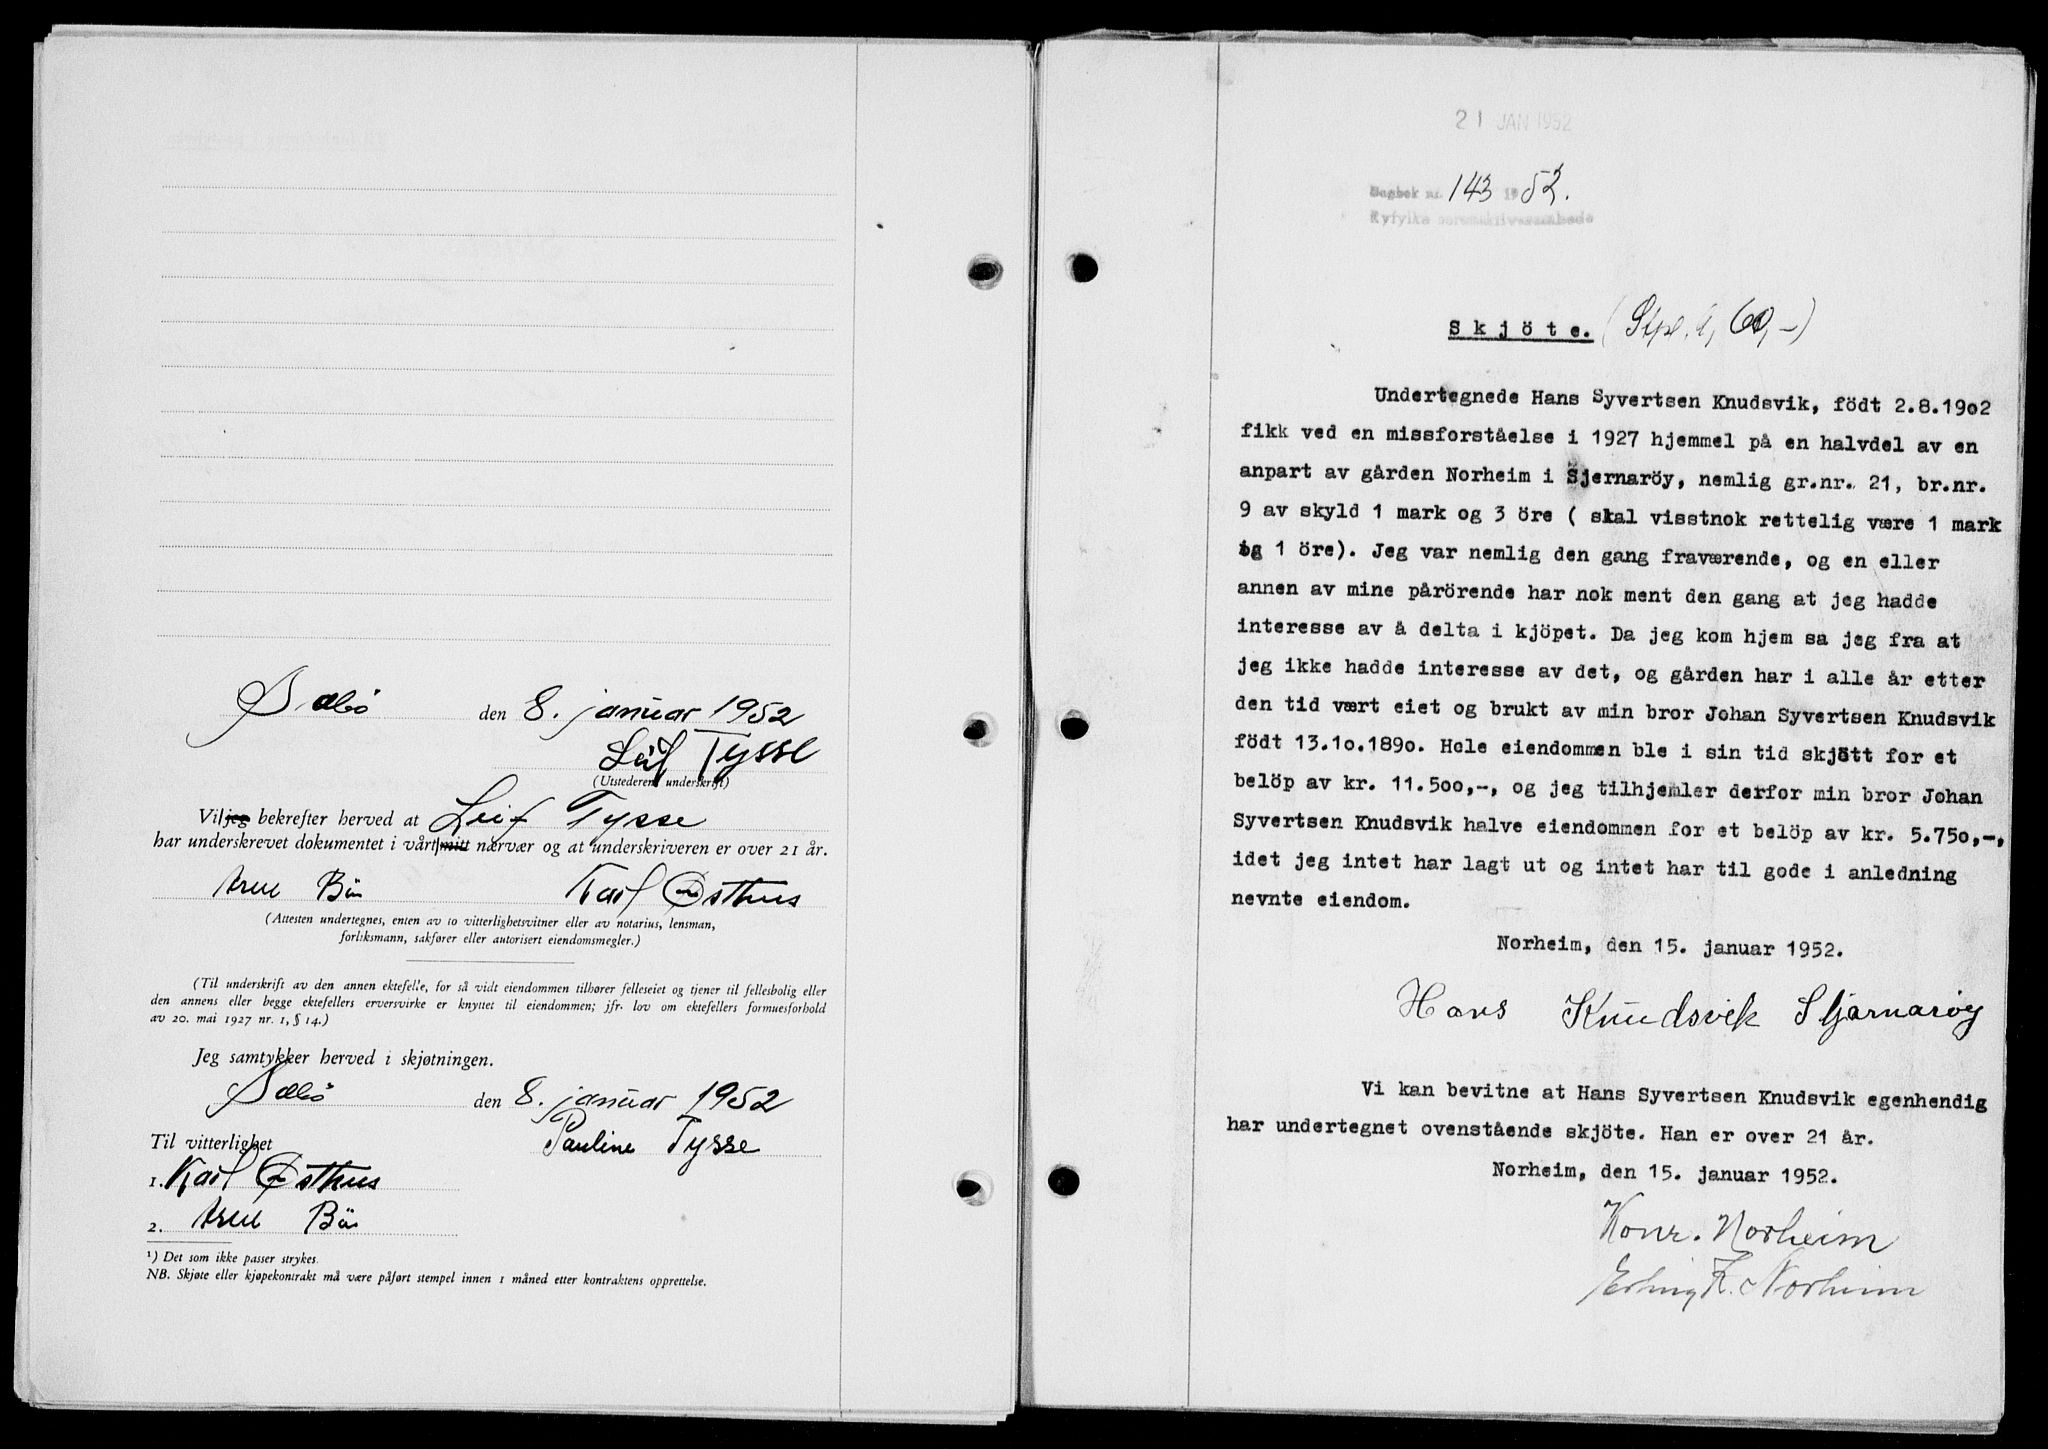 Sæbö den 8. januar 1952
Leif Tysse
(Utstederens underskrift)
Vi/jeg bekrefter herved at Leif Tysse
har underskrevet dokumentet i vårt/mitt nærvær og at underskriveren er over 21 år.
Arne Bö Karl Østhus
(Attesten undertegnes, enten av to vitterlighetsvitner eller av notarius, lensman,
forliksmann, sakfører eller autorisert eiendomsmegler.)
(Til underskrift av den annen ektefelle, for så vidt eiendommen tilhører felleseiet og tjener til fellesbolig eller
den annens eller begge ektefellers erversvirke er knyttet til eiendommen; jfr. lov om ektefellers formuesforhold
av 20. mai 1927 nr. 1, § 14.)
Jeg samtykker herved i skjøtningen.
Sæbö den 8. januar 1952
Til vitterlighet Pauline Tysse
1. Karl Østhus
2. Arne Bö
¹) Det som ikke passer strykes.
NB. Skjøte eller kjøpekontrakt må være påført stempel innen 1 måned etter kontraktens opprettelse.
21 JAN 1952
Dagbok nr. 143 1952.
Ryfylke sorenskriverembede
Skjöte. (Stpl. 60,-)
Undertegnede Hans Syvertsen Knudsvik, födt 2.8.1902
fikk ved en missforståelse i 1927 hjemmel på en halvdel av en
anpart av gården Norheim i Sjernaröy, nemlig gr.nr. 21, br.nr.
9 av skyld 1 mark og 3 öre ( skal visstnok rettelig være 1 mark
og 1 öre). Jeg var nemlig den gang fraværende, og en eller
annen av mine pårörende har nok ment den gang at jeg hadde
interesse av å delta i kjöpet. Da jeg kom hjem sa jeg fra at
jeg ikke hadde interesse av det, og gården har i alle år etter
den tid vært eiet og brukt av min bror Johan Syvertsen Knudsvik
födt 13.10.1890. Hele eiendommen ble i sin tid skjött for et
belöp av kr. 11.500,-, og jeg tilhjemler derfor min bror Johan
Syvertsen Knudsvik halve eiendommen for et belöp av kr. 5.750,-,
idet jeg intet har lagt ut og intet har til gode i anledning
nevnte eiendom.
Norheim, den 15. januar 1952.
Hans Knudsvik Sjernarøy
Vi kan bevitne at Hans Syvertsen Knudsvik egenhendig
har undertegnet ovenstående skjöte. Han er over 21 år.
Norheim, den 15. januar 1952.
Konr. Norheim
Erling K. Norheim